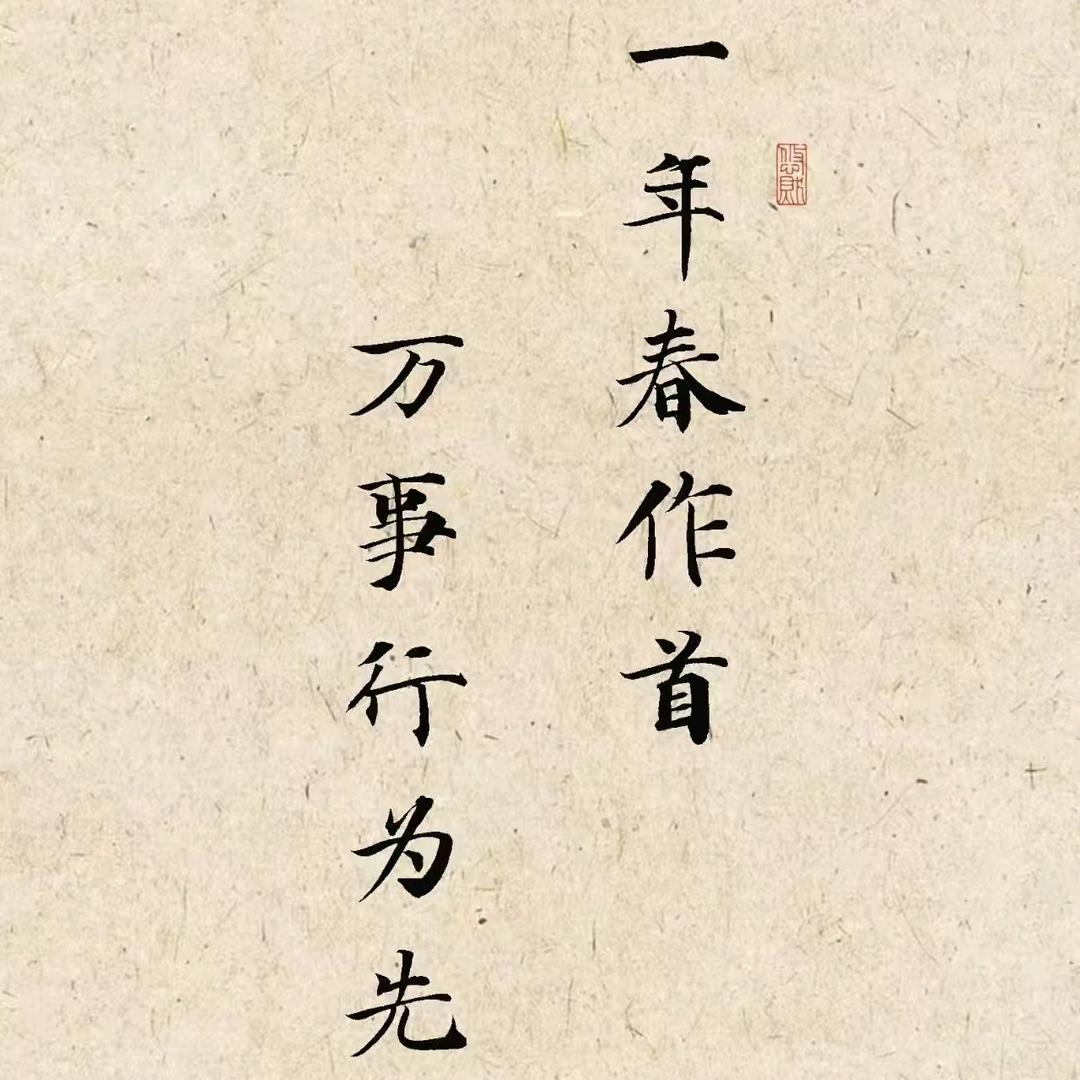 一年春作首
万事行为先